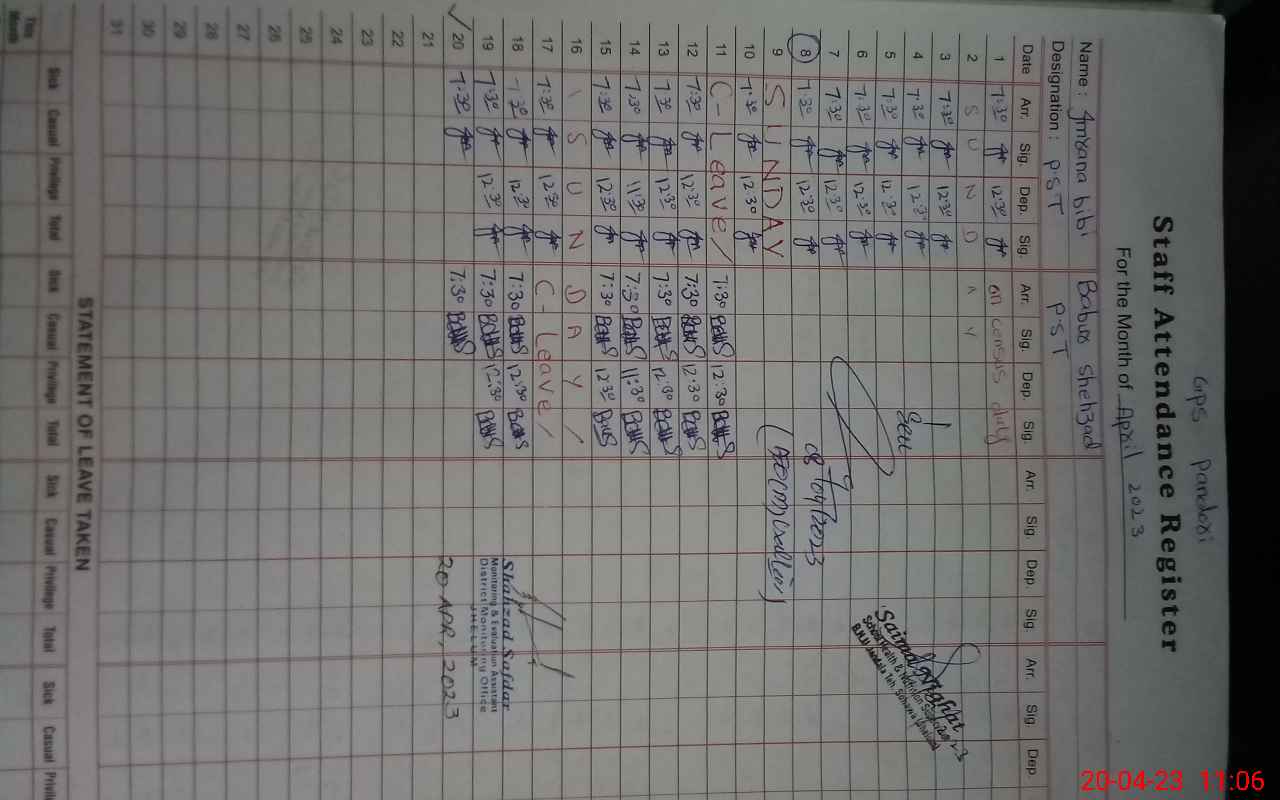 GPS Pandori
Staff Attendance Register
For the Month of April 2023
Name : Imrana bibi Babur Shehzad
Designation : P.ST P.ST
Date Arr. Sig. Dep. Sig. Arr. Sig. Dep. Sig. Arr. Sig. Dep. Sig. Arr. Sig. Dep.
1 7:30 12:30 on census duty
2 S U N D A Y
3 7:30 12:30
4 7:30 12:30
5 7:30 12:30
6 7:30 12:30
7 7:30 12:30
8 7:30 12:30
9 SUNDAY
10 7:30 12:30
11 C-Leave/ 7:30 12:30
12 7:30 12:30 7:30 12:30
13 7:30 12:30 7:30 12:30
14 7:30 11:30 7:30 11:30
15 7:30 12:30 7:30 12:30
16 \ S U N D A Y /
17 7:30 12:30 C-Leave/
18 7:30 12:30 7:30 12:30
19 7:30 12:30 7:30 12:30
20 7:30 7:30
21
22
23
24
25
26
27
28
29
30
31
Seen
08/04/2023
Saima
School Health & Nutrition
Shahzad Safdar
Monitoring & Evaluation Assistant
District Monitoring Office
JHELUM
20 APR, 2023
STATEMENT OF LEAVE TAKEN
Sick Casual Privilege Total Sick Casual Privilege Total Sick Casual Privilege Total Sick Casual
This Month
20-04-23 11:06